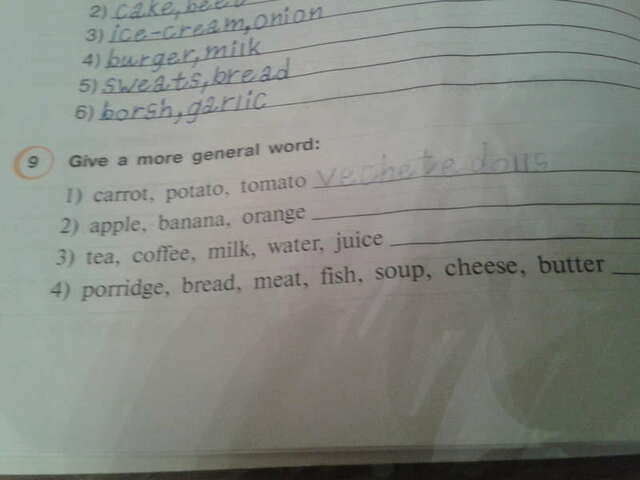 2) cake, beet
3) ice-cream, onion
4) burger, milk
5) sweats, bread
6) borsh, garlic
9 Give a more general word:
1) carrot, potato, tomato
2) apple, banana, orange
3) tea, coffee, milk, water, juice
4) porridge, bread, meat, fish, soup, cheese, butter